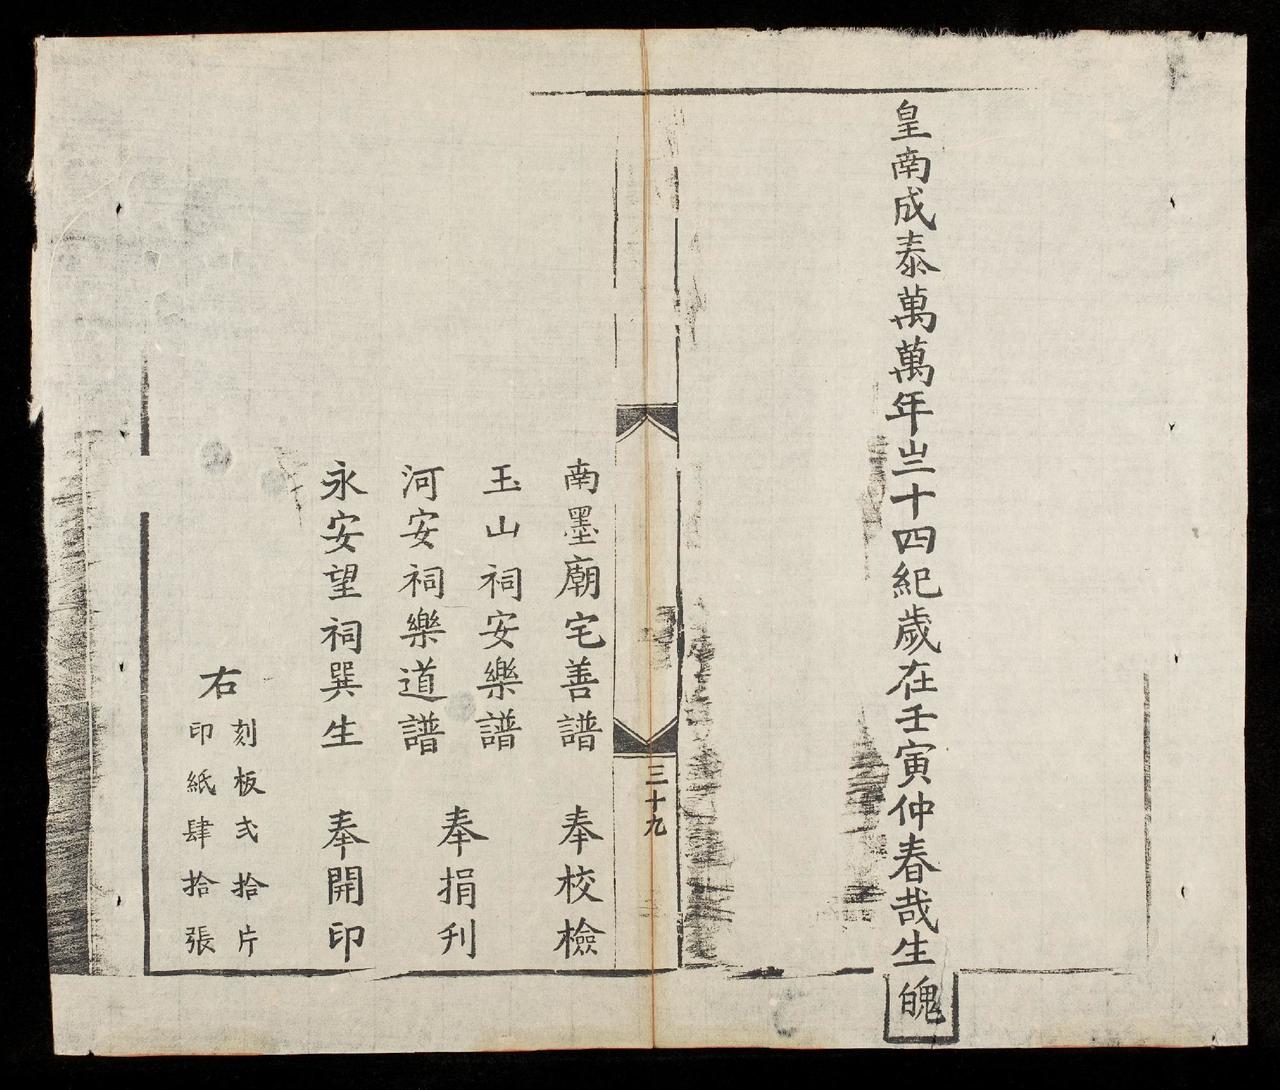 皇南成泰萬萬年十四紀歲在壬寅仲春哉生魄
三十九
南墨廟宅善譜 奉校檢
玉山祠安樂譜
河安祠樂道譜
奉捐刋
永安望祠巽生 奉開印
右
刻板弍拾片
印紙肆拾張